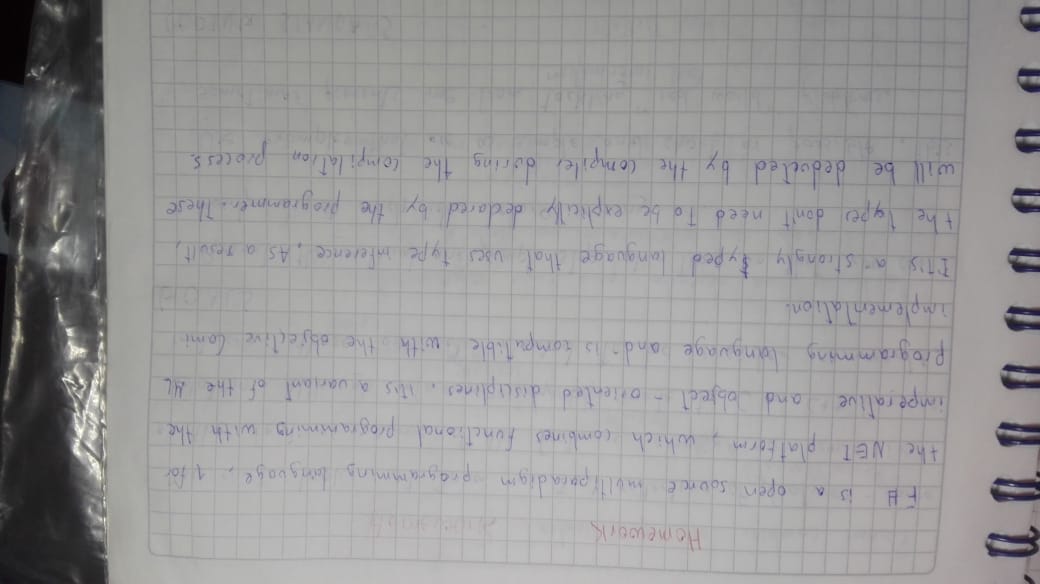 Homework
F# is a open source multiparadigm programming language, for
the NET platform, which combines functional programming with the
imperative and object-oriented disciplines. it's a variant of the ML
programming language and is compatible with the objective Caml
implementation.
It's a strongly typed language that uses type inference, As a result,
the types don't need to be explicitly declared by the programmer. These
will be deducted by the compiler during the compilation process.